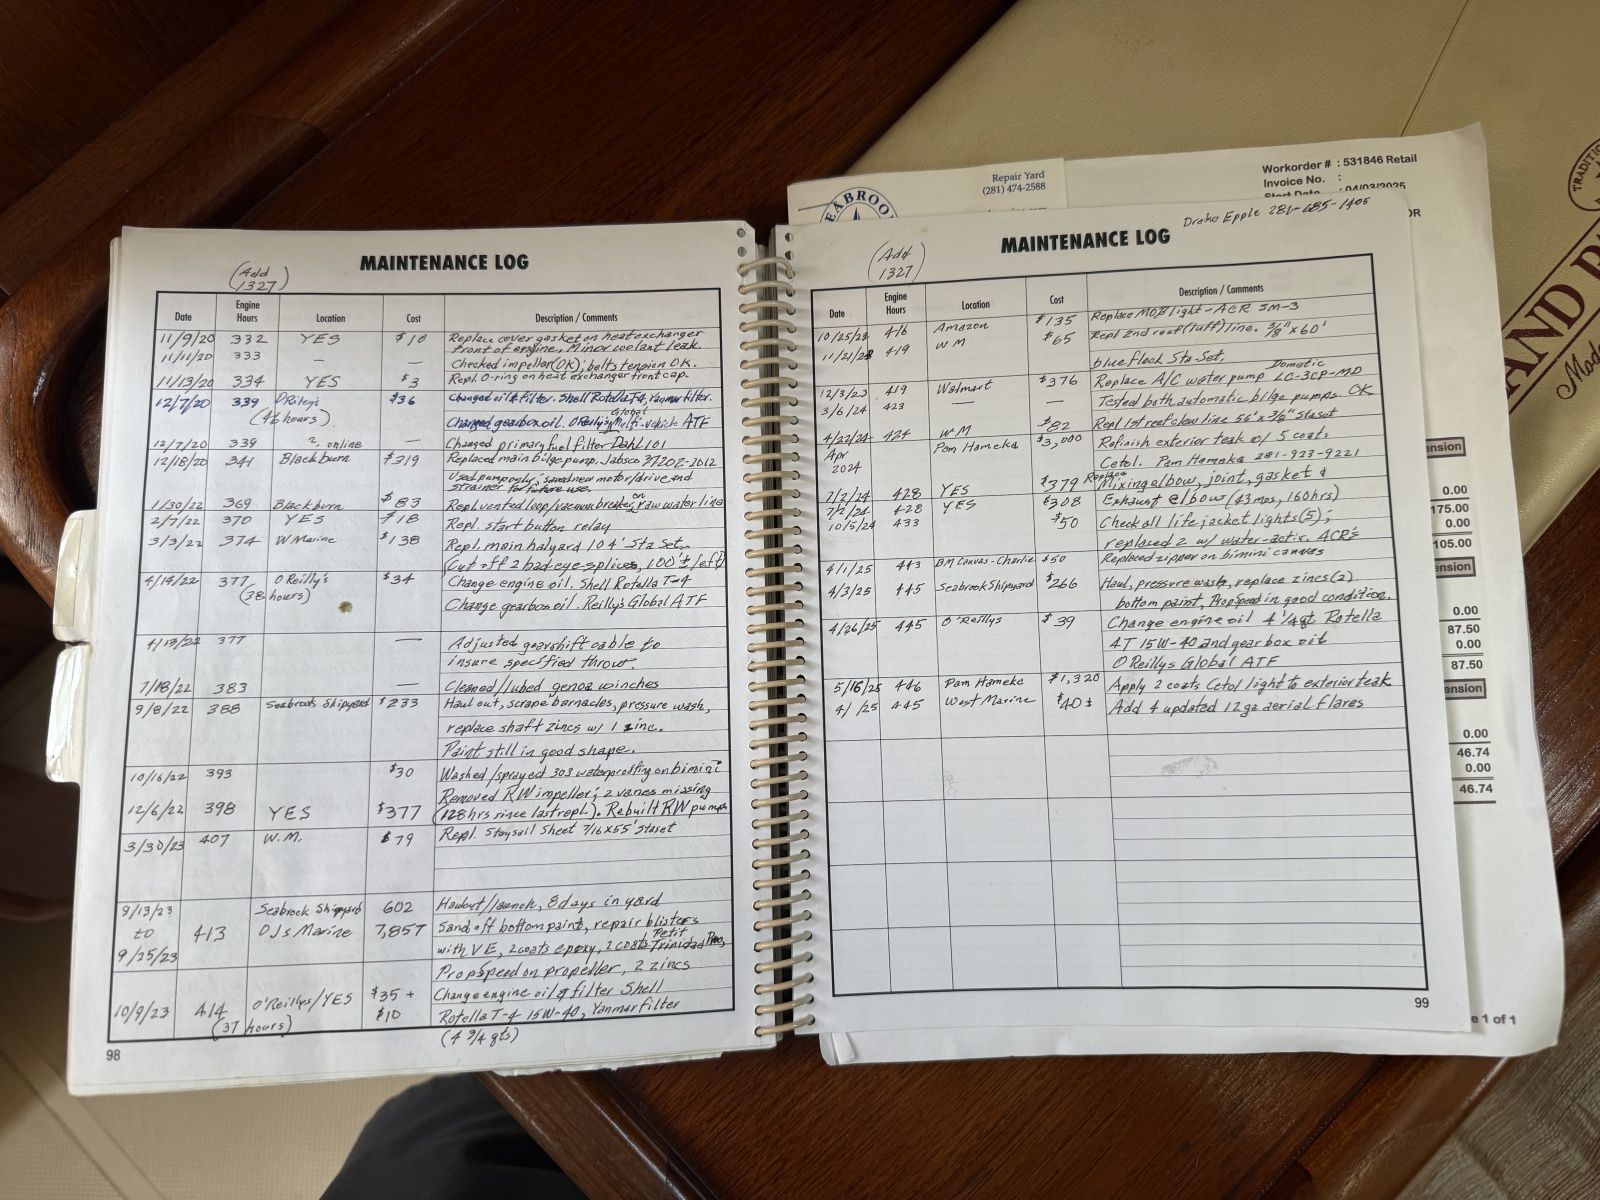 Repair Yard
(281) 474-2588
EABROO
Workorder # : 531846 Retail
Invoice No. :
Start Date : 04/03/2025
TRADITIO
AND
Drake Epple 281-685-1405
MAINTENANCE LOG
(Add 1327)
Date Engine Hours Location Cost Description / Comments
11/9/20 332 YES $10 Replace cover gasket on heat exchanger
front of engine. Minor coolant leak.
11/11/20 333 — — Checked impeller (OK); belts tension OK.
11/13/20 334 YES $3 Repl. O-ring on heat exchanger front cap.
12/7/20 339 O'Riley's $36 Changed oil & filter. Shell Rotella T4, Yanmar filter.
(46 hours) Changed gearbox oil. O'Reilly's Global Multi-vehicle ATF
12/7/20 339 ?, online — Changed primary fuel filter Dahl 101
12/18/20 341 Blackburn $319 Replaced main bilge pump. Jabsco 37202-2012
Used pump only; saved new motor/drive and
strainer for future use.
1/30/22 369 Blackburn $83 Repl. vented loop/vacuum breaker on raw water line
2/7/22 370 YES $18 Repl. start button relay
3/3/22 374 W Marine $138 Repl. main halyard 104' Sta Set.
(Cut off 2 bad eye-splices, 100'± left)
4/14/22 377 O'Reilly's $34 Change engine oil. Shell Rotella T-4
(38 hours) Change gearbox oil. Reilly's Global ATF
4/13/22 377 — Adjusted gearshift cable to
insure specified throw.
7/18/22 383 — Cleaned/lubed genoa winches
9/8/22 388 Seabrook Shipyard $233 Haul out, scrape barnacles, pressure wash,
replace shaft zincs w/ 1 zinc.
Paint still in good shape.
10/16/22 393 $30 Washed/sprayed 303 waterproofing on bimini
Removed RW impeller; 2 vanes missing
12/6/22 398 YES $377 (128 hrs since last repl.). Rebuilt RW pump
3/30/23 407 W.M. $79 Repl. Staysail Sheet 7/16x55' Staset
9/13/23 Seabrook Shipyard 602 Haulout/launch, 8 days in yard
to 413 DJs Marine 7,857 Sand off bottom paint, repair blisters
9/25/23 with VE, 2 coats epoxy, 2 coats Petit Trinidad Pro,
PropSpeed on propeller, 2 zincs
10/9/23 414 O'Reillys/YES $35 + Change engine oil & filter Shell
(37 hours) $10 Rotella T-4 15W-40, Yanmar filter
(4 3/4 qts)
98
MAINTENANCE LOG
(Add 1327)
Date Engine Hours Location Cost Description / Comments
10/25/23 416 Amazon $135 Replace MOB light - ACR SM-3
11/21/23 419 W M $65 Repl 2nd reef (luff) line. 3/8" x 60'
blue fleck Sta-Set,
12/3/23 419 Walmart $376 Replace A/C water pump Dometic LG-3CP-MD
3/6/24 423 — — Tested both automatic bilge pumps. OK
4/22/24 424 W M $82 Repl 1st reef clew line 56' x 3/8" Staset
Apr 2024 Pam Hameka $3,000 Refinish exterior teak w/ 5 coats
Cetol. Pam Hameka 281-923-9221
7/2/24 428 YES $379 Replace Mixing elbow, joint, gasket &
7/2/24 428 YES $308 Exhaust elbow (43 mos, 160 hrs)
10/5/24 433 $50 Check all life jacket lights (5);
replaced 2 w/ water-activ. ACR's
4/1/25 443 BM Canvas - Charlie $50 Replaced zipper on bimini canvas
4/3/25 445 Seabrook Shipyard $266 Haul, pressure wash, replace zincs (2)
bottom paint, PropSpeed in good condition.
4/26/25 445 O'Reillys $39 Change engine oil 4 1/4 qt Rotella
4T 15W-40 and gearbox oil
O'Reillys Global ATF
5/16/25 446 Pam Hameke $1,320 Apply 2 coats Cetol light to exterior teak
4/1/25 445 West Marine $40± Add 4 updated 12 ga aerial flares
99
OR
ension
0.00
175.00
0.00
105.00
ension
0.00
87.50
0.00
87.50
ension
0.00
46.74
0.00
46.74
e 1 of 1